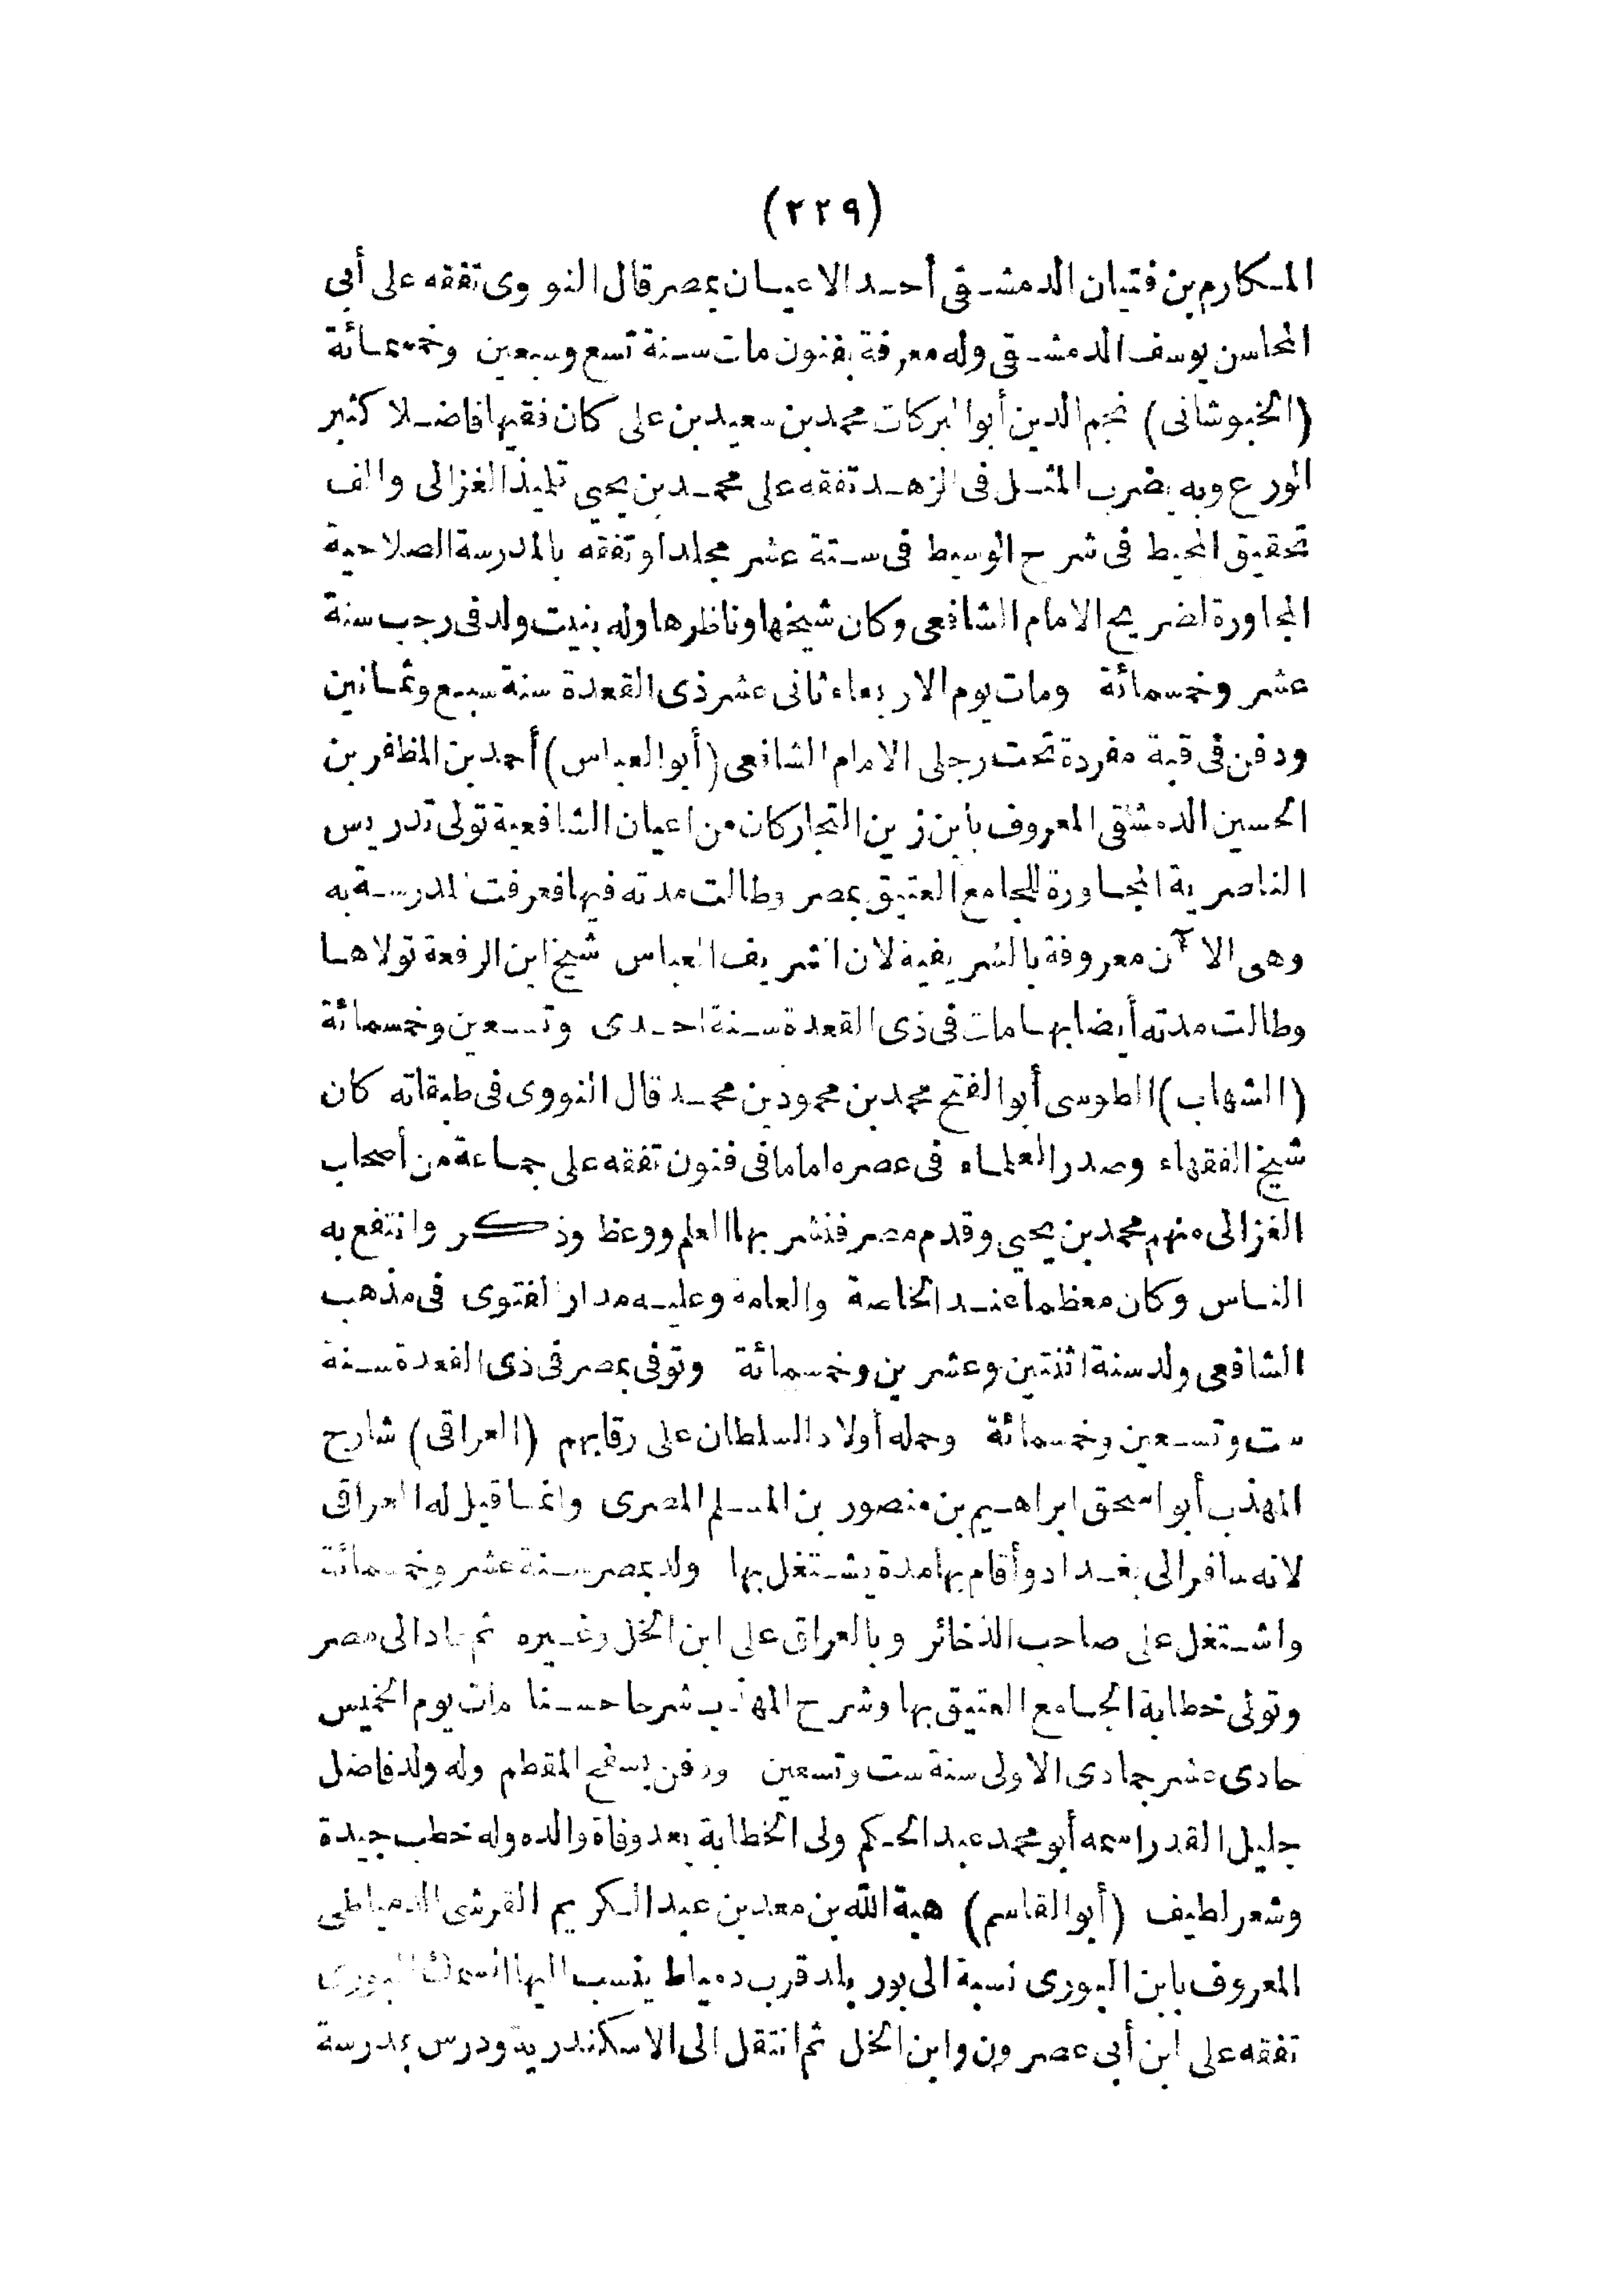 (٢٢٩)
المكارم بن فتيان الدمشقي أحد الاعيان بمصر قال النووى تفقه على أبي
المحاسن يوسف الدمشقي وله معرفة بفنون مات سنة تسع وسبعين وخمسمائة
(الخبوشانى) نجم الدين أبو البركات محمد بن سعيد بن على كان فقيها فاضلا كثير
الورع وبه يضرب المثل فى الزهد تفقه على محمد بن يحيي تلميذ الغزالى والف
تحقيق المحيط فى شرح الوسيط فى ستة عشر مجلدا وتفقه بالمدرسة الصلاحية
المجاورة لضريح الامام الشافعى وكان شيخها وناظرها وله بنيت ولد فى رجب سنة
عشر وخمسمائة ومات يوم الاربعاء ثانى عشر ذى القعدة سنة سبع وثمانين
ودفن فى قبة مفردة تحت رجلى الامام الشافعى (أبو العباس) أحمد بن المظفر بن
الحسين الدمشقى المعروف بابن زين التجار كان من اعيان الشافعية تولى تدريس
الناصرية المجاورة للجامع العتيق بمصر وطالت مدته فيها فعرفت المدرسة به
وهى الاآن معروفة بالشريفية لان الشريف العباس شيخ ابن الرفعة تولاها
وطالت مدته أيضا بها مات فى ذى القعدة سنة احدى وتسعين وخمسمائة
(الشهاب) الطوسى أبو الفتح محمد بن محمود بن محمد قال النووى فى طبقاته كان
شيخ الفقهاء وصدر العلماء فى عصره اماما فى فنون تفقه على جماعة من أصحاب
الغزالى منهم محمد بن يحيي وقدم مصر فنشر بها العلم ووعظ وذكر وانتفع به
الناس وكان معظما عند الخاصة والعامة وعليه مدار الفتوى فى مذهب
الشافعى ولد سنة اثنتين وعشرين وخمسمائة وتوفى بمصر فى ذى القعدة سنة
ست وتسعين وخمسمائة وحمله أولاد السلطان على رقابهم (العراقى) شارح
المهذب أبو اسحق ابراهيم بن منصور بن المسلم المصرى وانما قيل له العراقى
لانه سافر الى بغداد وأقام بها مدة يشتغل بها ولد بمصر سنة عشر وخمسمائة
واشتغل على صاحب الذخائر وبالعراق على ابن الخل وغيره ثم عاد الى مصر
وتولى خطابة الجامع العتيق بها وشرح المهذب شرحا حسنا مات يوم الخميس
حادى عشر جمادى الاولى سنة ست وتسعين ودفن بسفح المقطم وله ولد فاضل
جليل القدر اسمه أبو محمد عبد الحكم ولى الخطابة بعد وفاة والده وله خطب جيدة
وشعر لطيف (أبو القاسم) هبة الله بن معد بن عبد الكريم القرشى الدمياطى
المعروف بابن البورى نسبة الى بور بلد قرب دمياط ينسب اليها السمك البورى
تفقه على ابن أبى عصرون وابن الخل ثم انتقل الى الاسكندرية ودرس بمدرسة